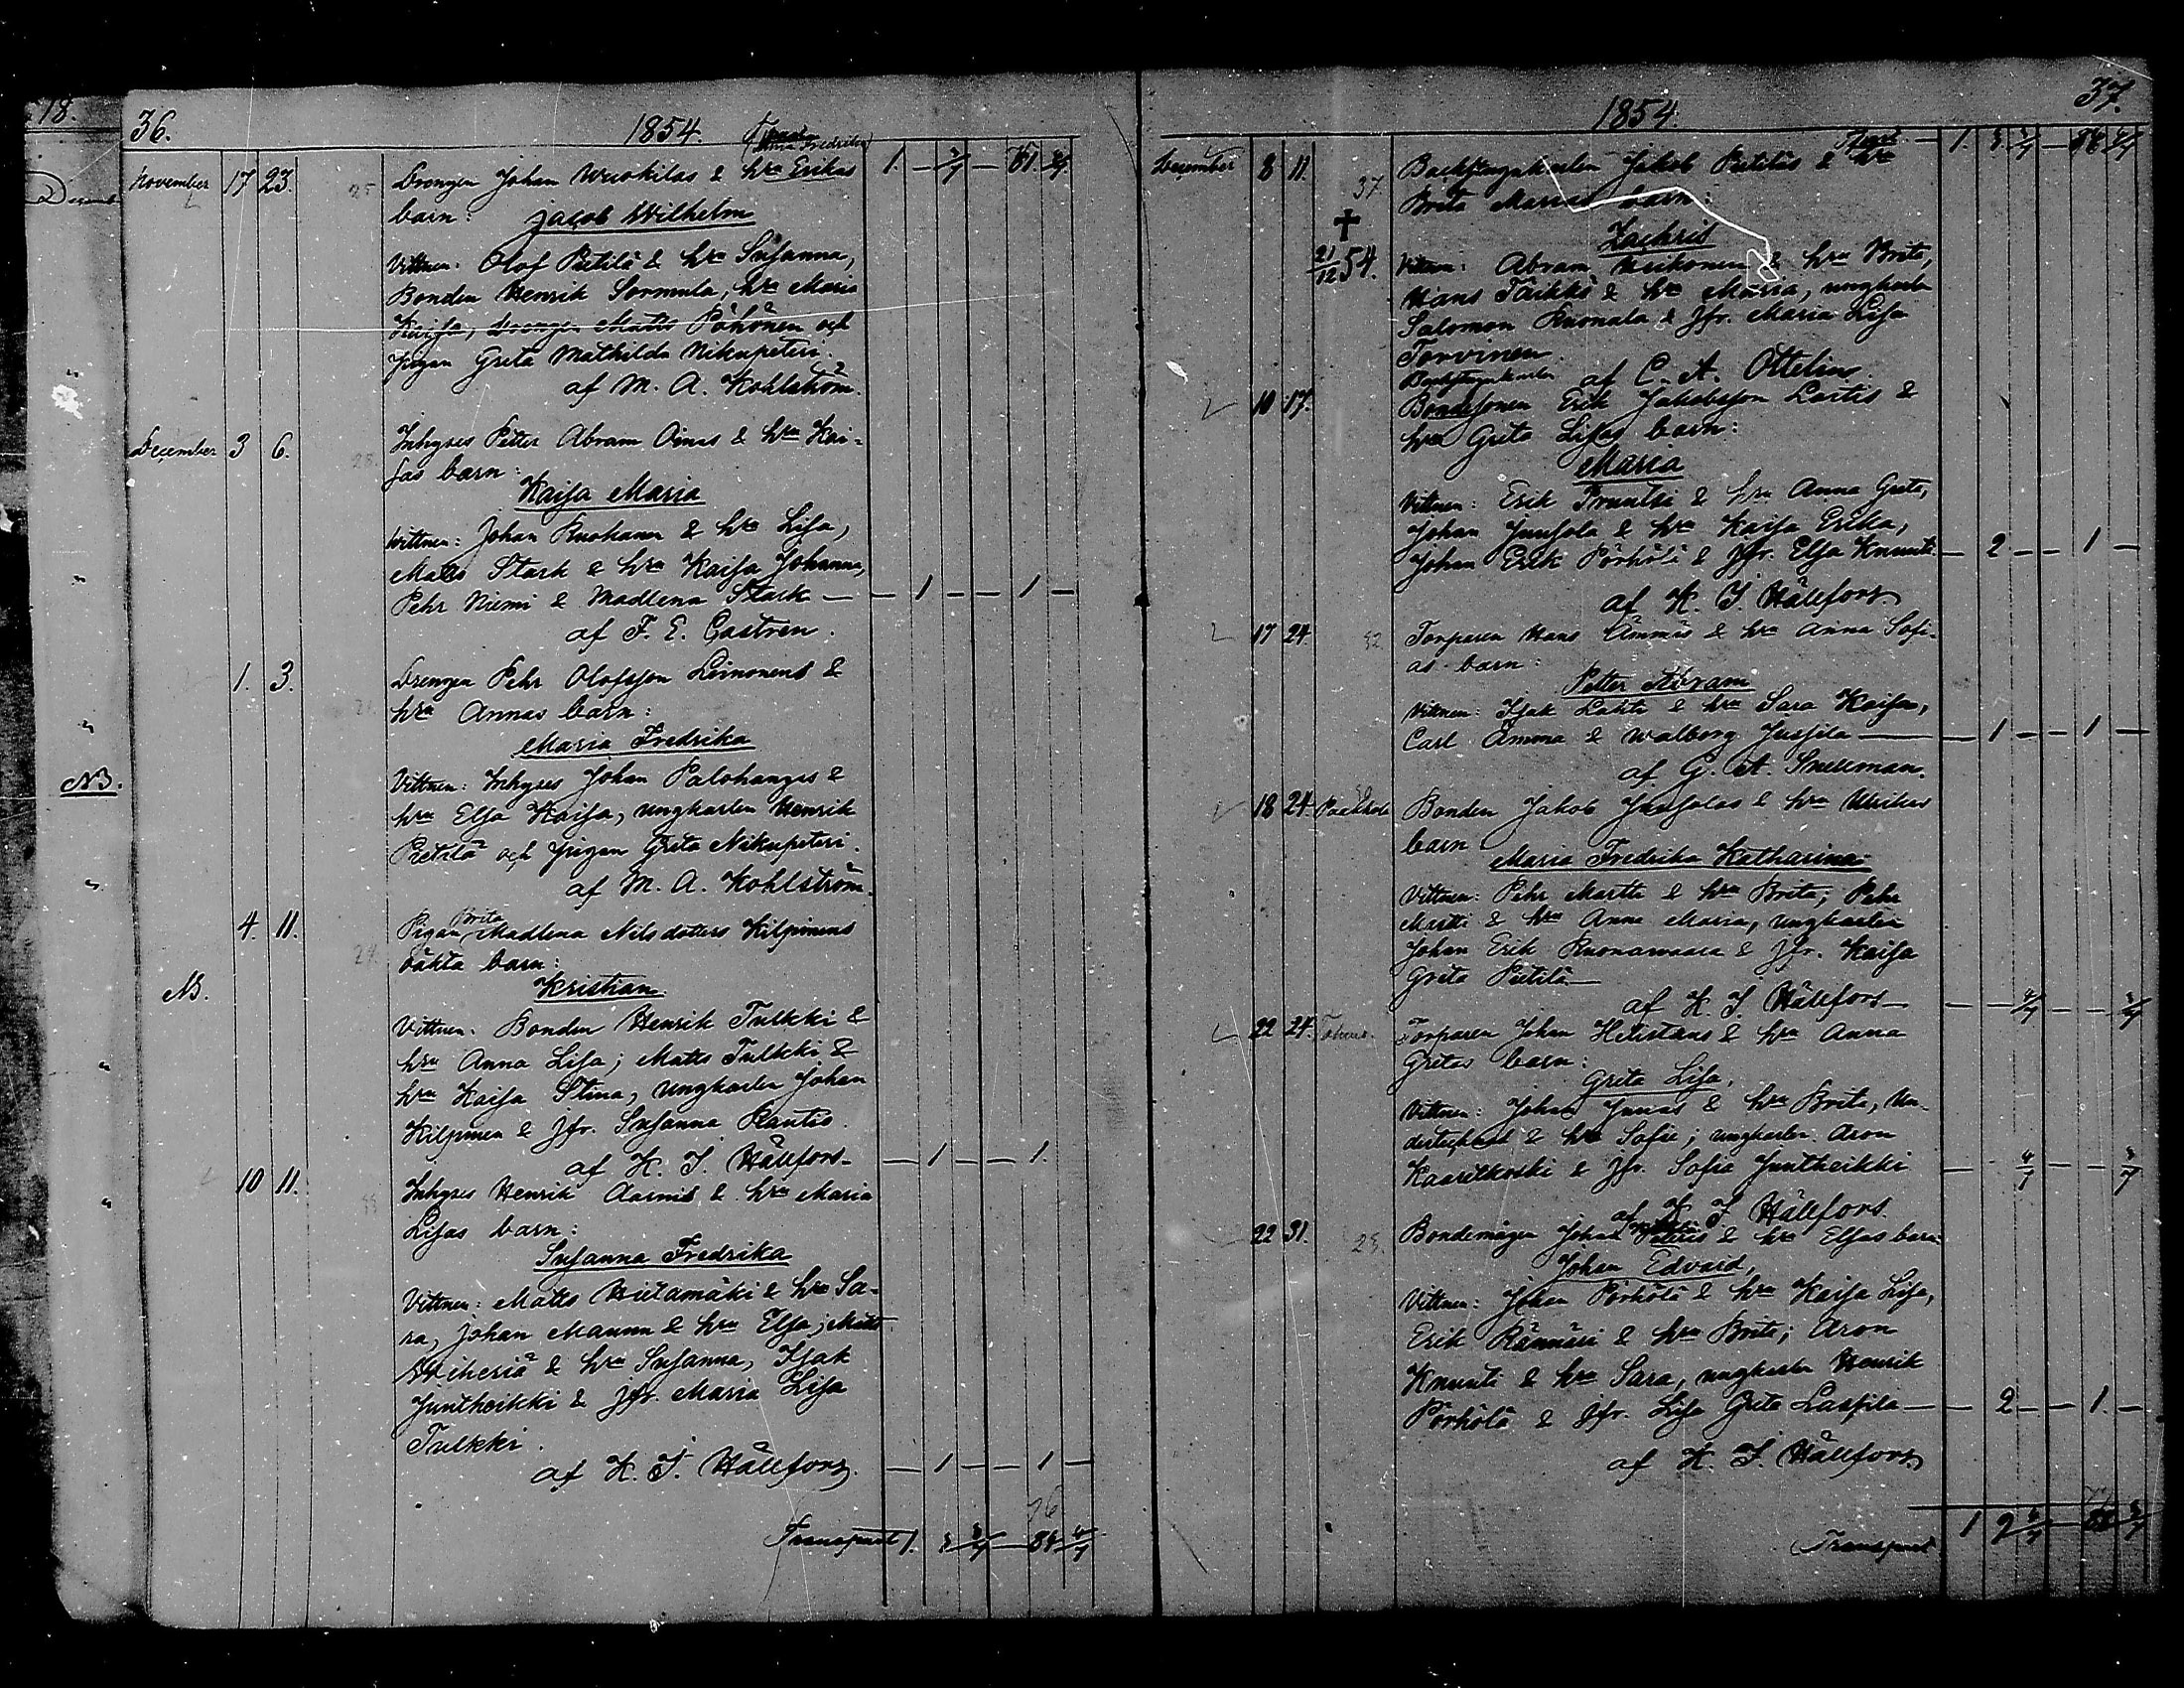 18.
NB.
36.
1854.
November 17 23. 25
Drengen Johan Wuokilas & hru Erikas 1. — 2/7 — 81. 2/7.
barn: Jacob Wilhelm
Vittnen: Olof Pietilä & hru Susanna,
Bonden Henrik Sormula, hru Maria
Kaisa, Drengen Matts Pöhönen och
pigan Greta Mathilda Nikupeteri.
af M. A. Kohlström.
December 3 6. 28.
Inhyses Petter Abram Oinas & hru Kai-
sas barn:
Kaisa Maria
Wittnen: Johan Ruokanen & hru Lisa,
Matts Stark & hru Kaisa Johanna,
Pehr Niemi & Madlena Stark — — 1 — — 1 —
af F. E. Castren.
1. 3.
Drengen Pehr Olofsson Leinonens &
hru Annas barn:
Maria Fredrika
Vittnen: Inhyses Johan Palohanges &
hru Elsa Kaisa, ungkarlen Henrik
Pietilä och pigan Greta Nikupeteri.
af M. A. Kohlström.
4. 11. 24.
Pigan Brita Madlena Nilsdotters Kilpinens
oäkta barn:
NB. Kristian.
Vittnen. Bonden Henrik Tulkki &
hru Anna Lisa; Matts Tulkki &
hru Kaisa Stina, ungkarlen Johan
Kilpinen & Jfr. Susanna Rantio.
af K. J. Hällfors — — 1 — — 1.
10 11.
Inhyses Henrik Aarnis & hru Maria
Lisas barn:
Susanna Fredrika
Vittnen: Matts Hietamäki & hru Sa-
ra, Johan Maunu & hru Elsa; Matts
Wiheriä & hru Susanna, Isak
Juntheikki & Jfr. Maria Lisa
Tulkki.
af K. J. Hällfors. — 1 — — 1 —
76
Transport 1.
37.
1854.
December 8 11. 37.
Backstugukarlen Jakob Pietiläs & hru
Brita Marias barn:
† 21/12 54.
Zachris
Vittnen: Abram & hru Brita,
Hans Täikkö & hru Maria, ungkarlen
Salomon Kuonala & Jfr. Maria Lisa
Torvinen.
af C. A. Ottelin.
Backstugukarlen
10 17.
Bondesonen Erik Jakobsson Lortis &
hru Greta Lisas barn:
Maria
Vittnen: Erik Pruntsi & hru Anna Greta,
Johan Junsola & hru Kaisa Erika,
Johan Erik Pörhölä & Jfr. Elsa Knuuti — 2 — — 1 —
af K. J. Hällfors.
17 24. 32.
Torparen Hans Ämmäs & hru Anna Sofi-
as barn:
Petter Abram
Vittnen: Isak Lahti & hru Sara Kaisa,
Carl Ämmä & Walborg Jussila — — 1 — — 1 —
af G. A. Snellman.
18 24.
Bonden Jakob Junsolas & hru Ulrikas
barn
Maria Fredrika Katharina
Vittnen: Pehr Martti & hru Brita; Pehr
Martti & hru Anna Maria, ungkarlen
Johan Erik Kuonawaara & Jfr. Kaisa
Greta Pietilä —
af K. J. Hällfors —
22 24.
Torparen Johan Hetistans & hru Anna
Gretas barn:
Greta Lisa.
Vittnen: Johan Junas & hru Brita,
& hru Sofie; ungkarlen Aron
Kaarelkoski & Jfr. Sofia Juntheikki
af K. J. Hällfors.
22 31. 23.
Bondemågen Johan & hru Elsas barn:
Johan Edvard,
Vittnen: Johan Pörhölä & hru Kaisa Lisa,
Erik Rännäri & hru Brita; Aron
Knuuti & hru Sara, ungkarlen Henrik
Pörhölä & Jfr. Lisa Greta Lassila — — 2 — — 1. —
af K. J. Hällfors
Transport 1